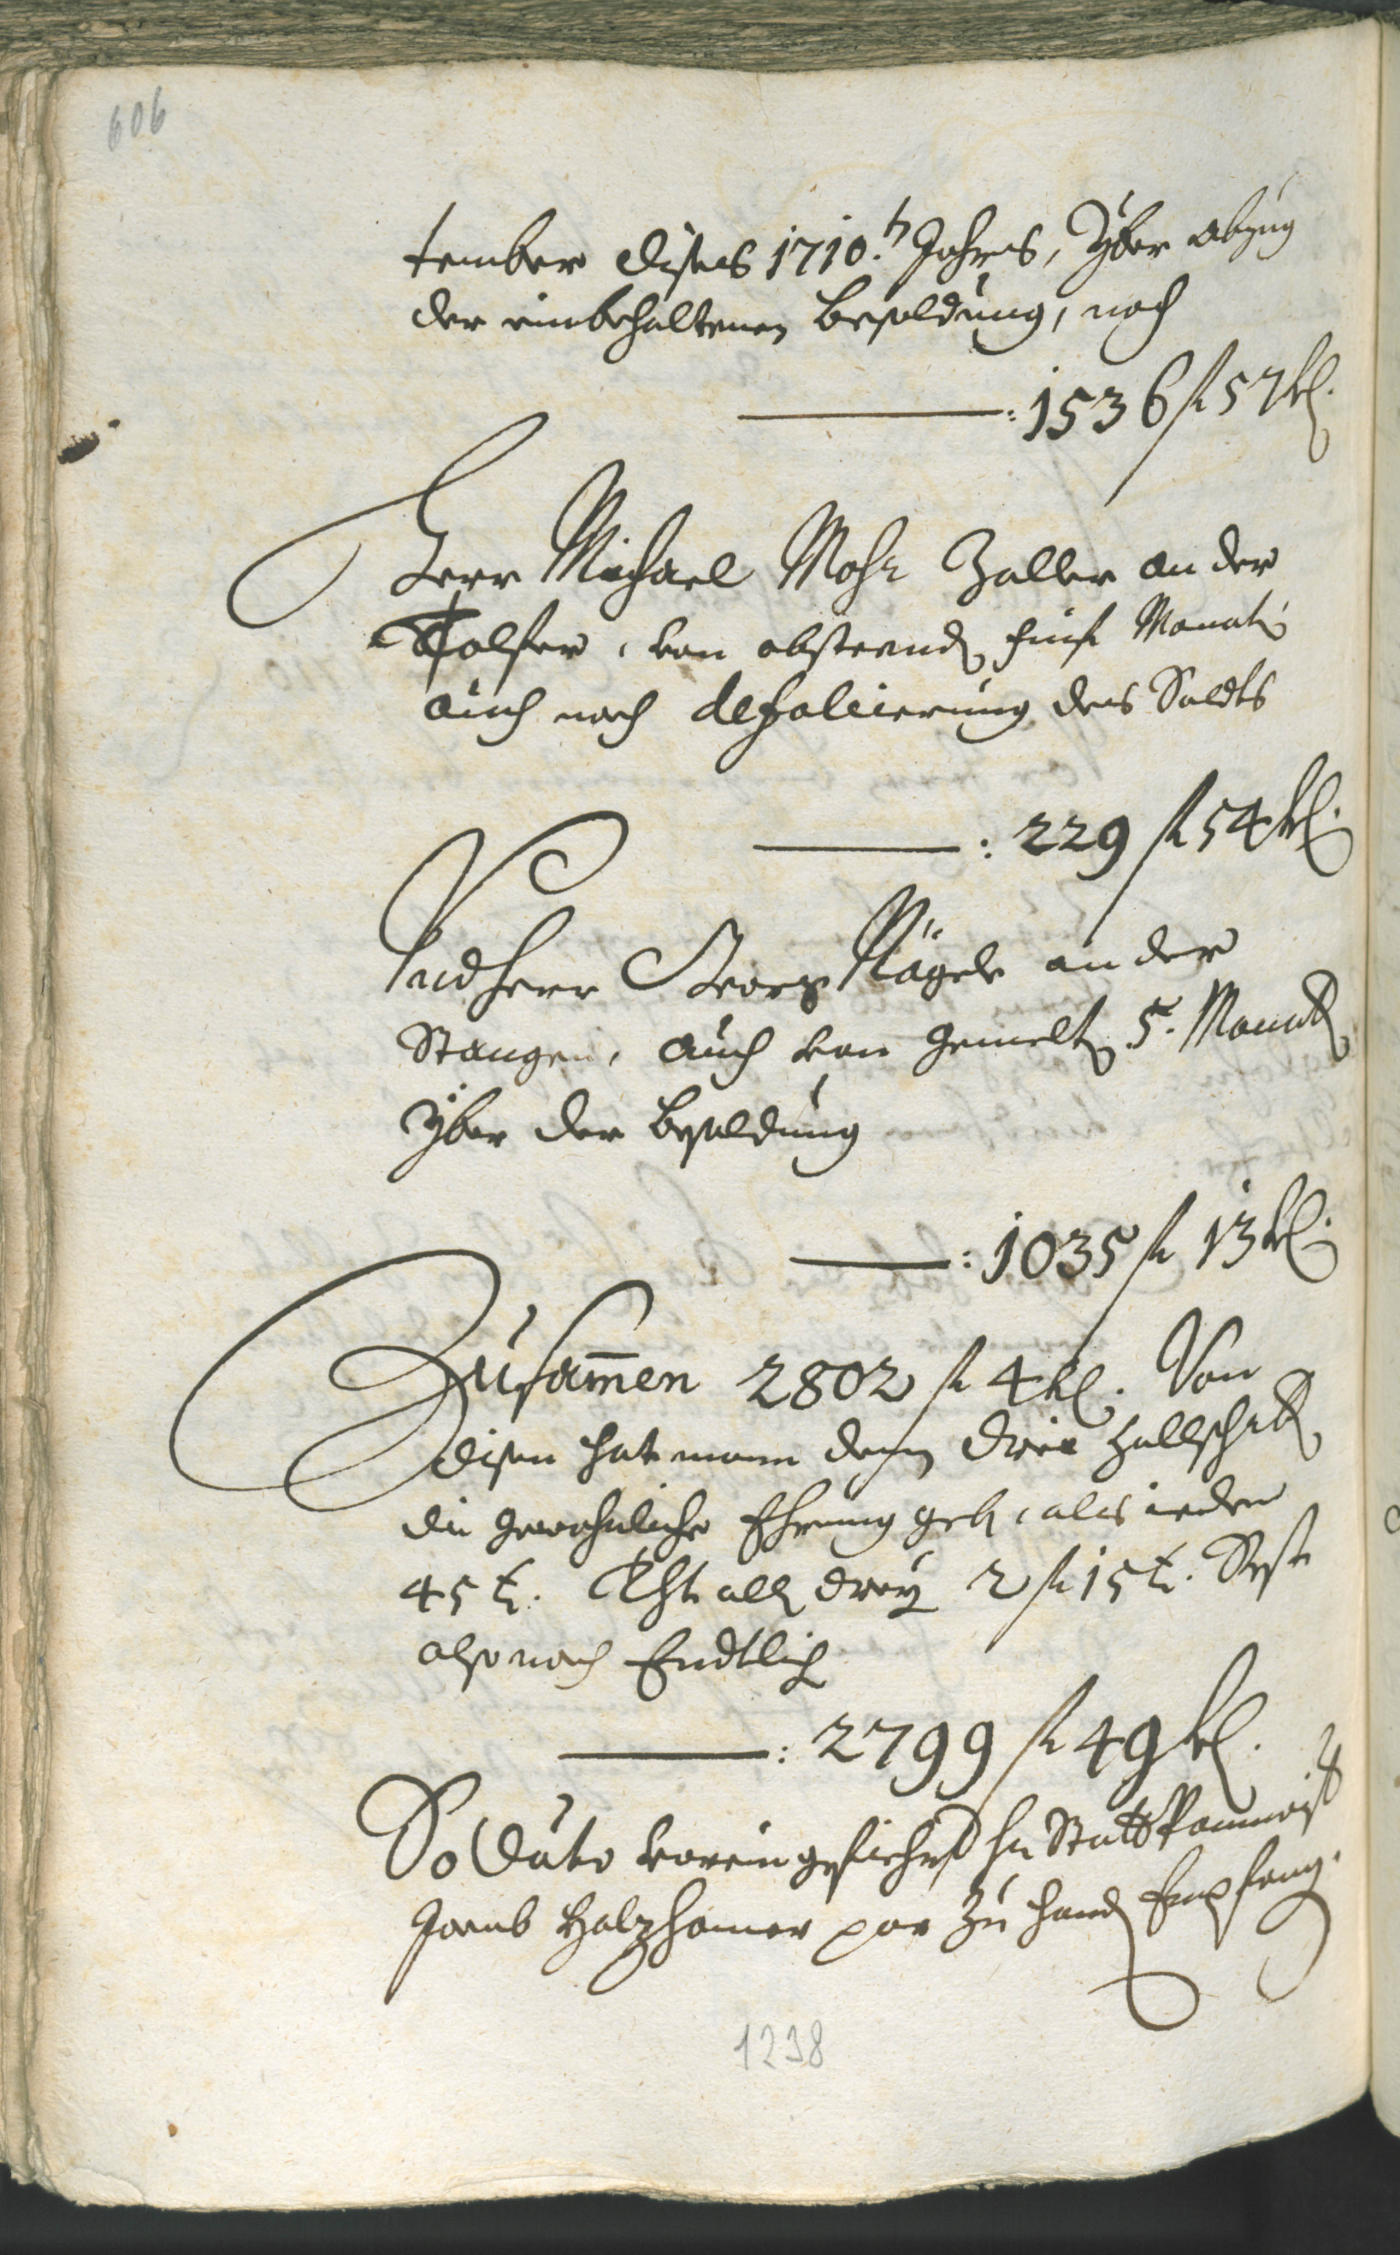 606
tember dises 1710.ts Jahrs, Yber abzug
der einbehaltenen Besoldung, noch
———: 1536 fl 57 kr.
Herr Michael Mohr Zaller an der
Talfer, von obsteend fünf Monat
auch nach defalcierung des Soldts
———: 229 fl 54 kr.
Und Herr Georg Nägele an der
Stangen, auch von gemelt 5. Monath
Yber der Besoldung
———: 1035 fl 13 kr.
Zusam̄en 2802 fl 4 kr. Von
disen hat mann denen dreien
die gewohnliche Ehrung geb, als ieden
45 kr. Thт all drey 2 fl 15 kr. Rest
also noch Endtlich
———: 2799 fl 49 kr.
So Dato vorein gefiehrt Hr Statt
Jacob Holzhamer par zu hand Empfang.
1238